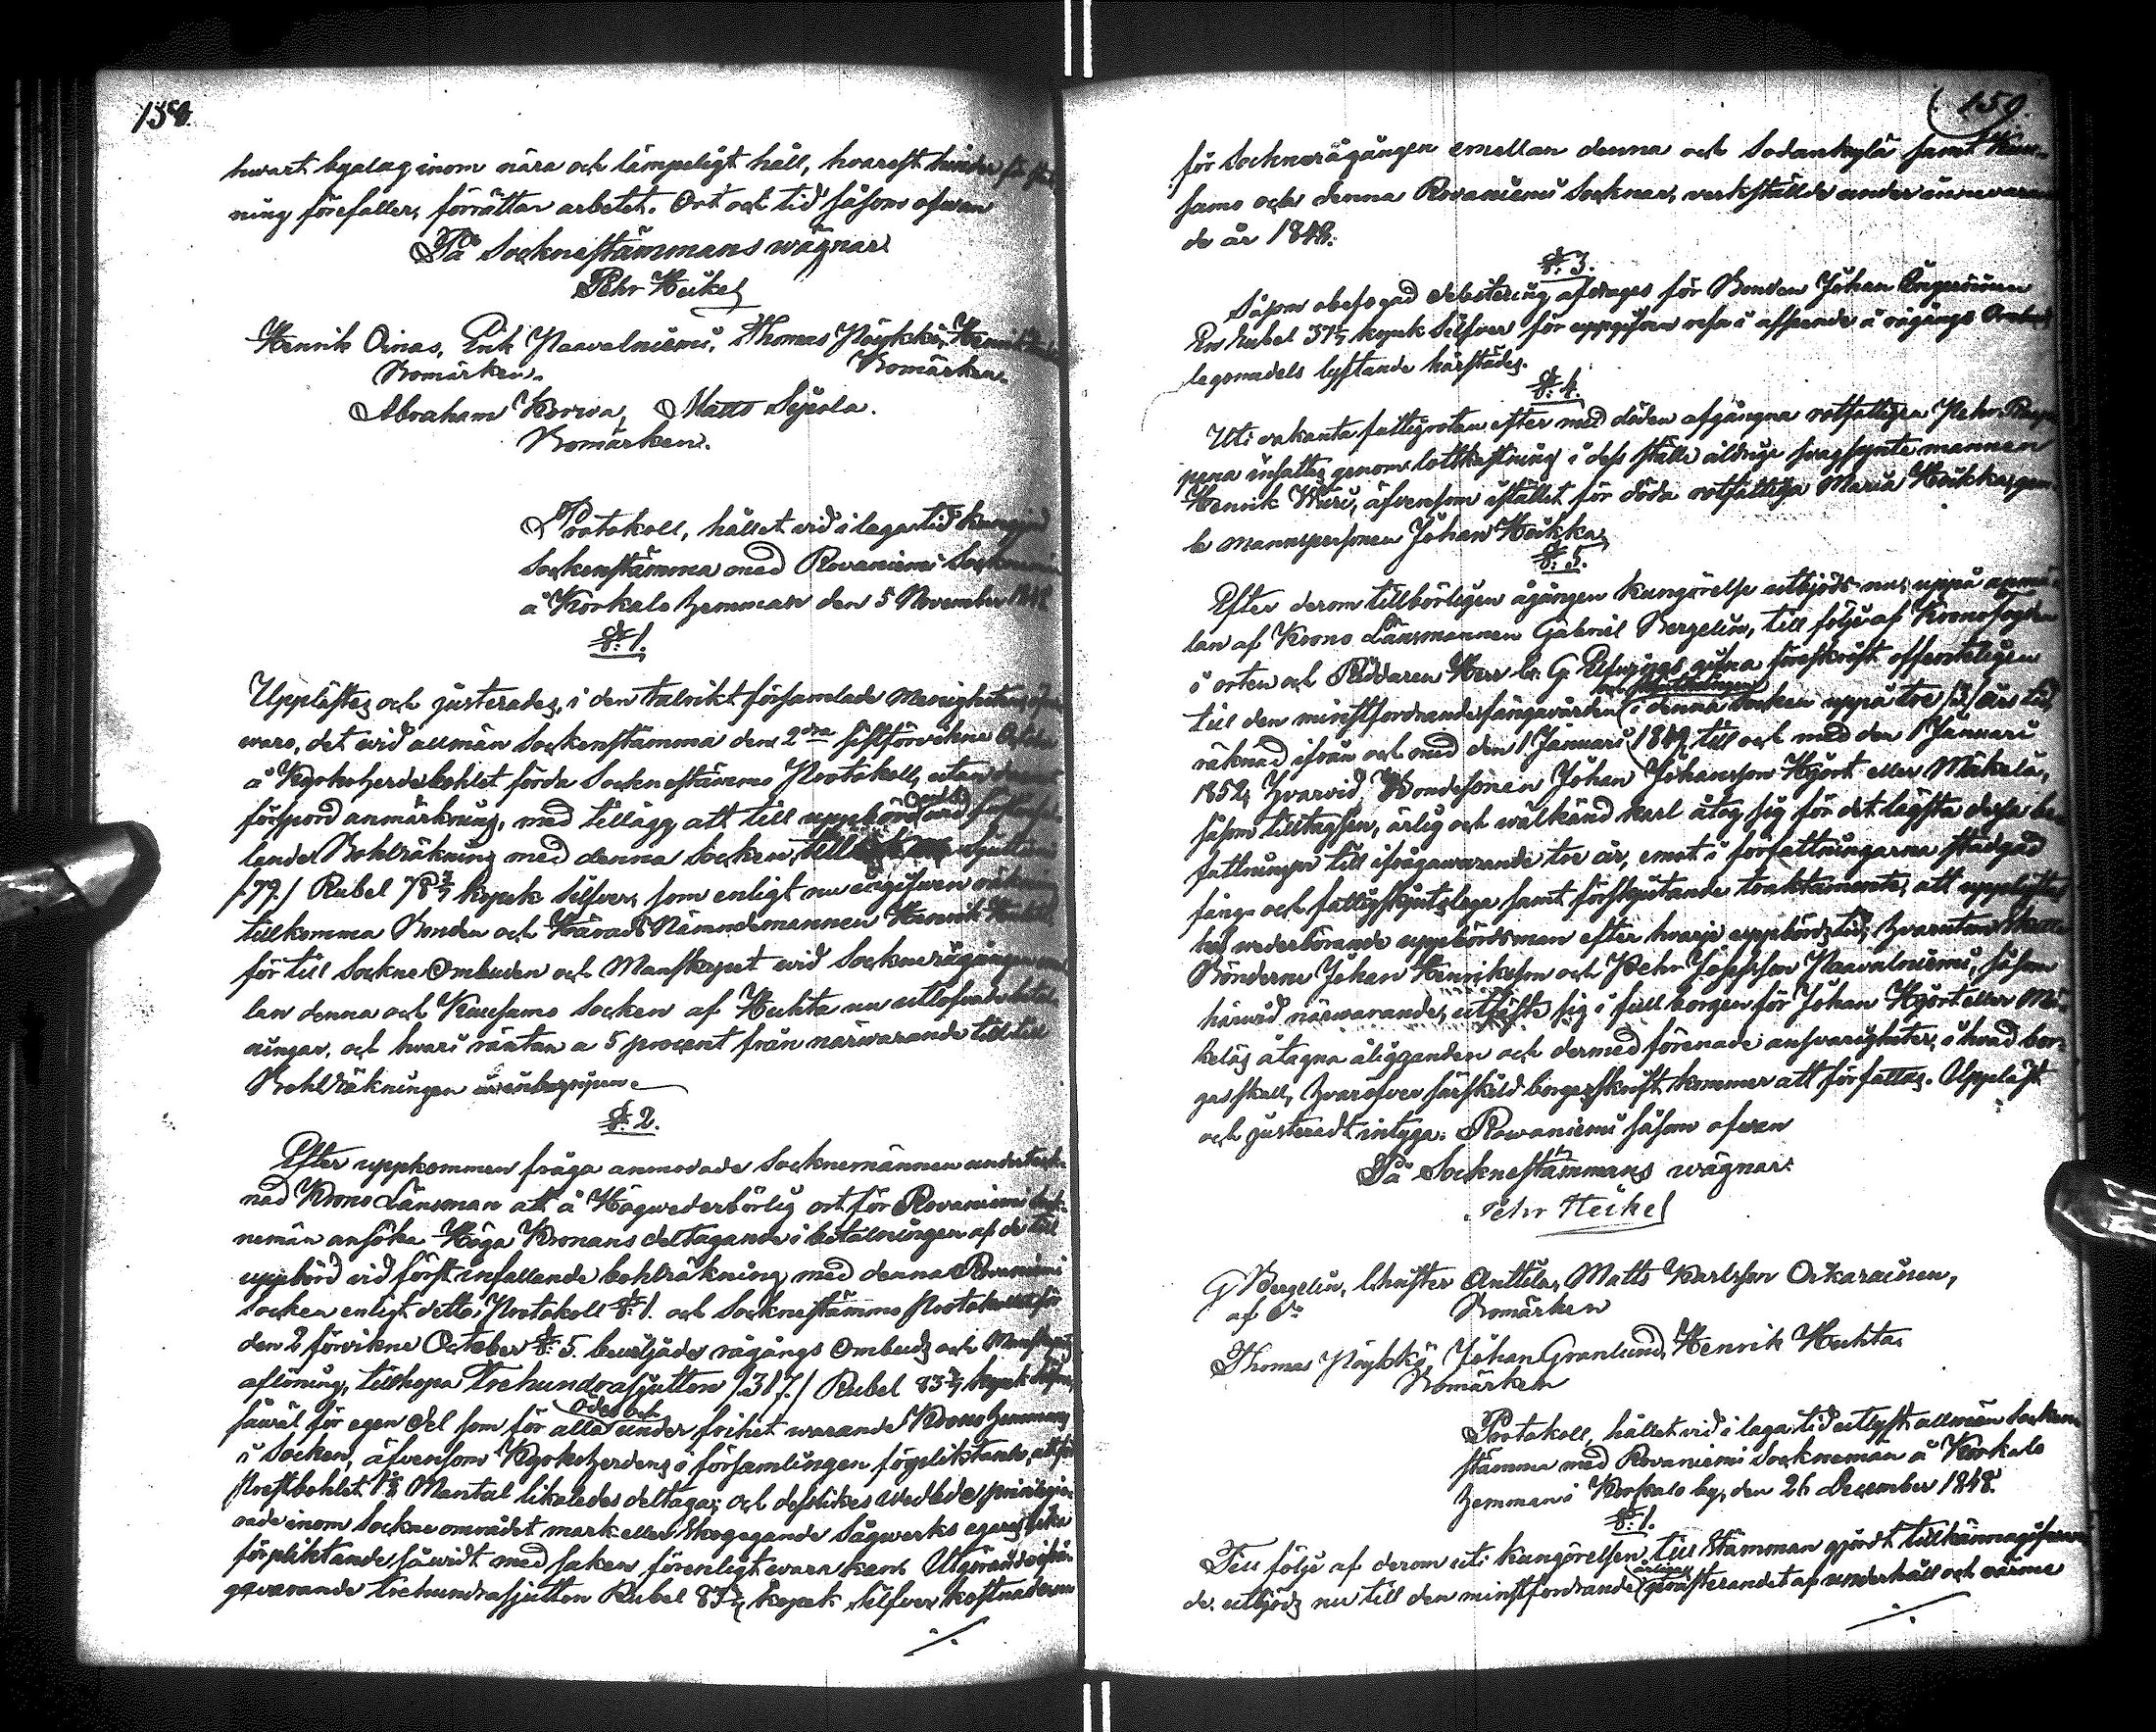 158.
hwart byalag inom nära och lämpeligt håll, hvarest hinder
ning förefaller, förrättar arbetet. Ort och tid såsom ofwan
På Socknestämmans wägnar:
Pehr Heikel
Henrik Oinas, Erik Paavalniemi, Thomas Pöykkö, Henrik
Bomärken. Bomärken.
Abraham Korwa, Matts Syväla.
Bomärken.
Protokoll, hållet vid i laga tid kungjord
Sockenstämma med Rovaniemi Sockne
å Korkalo hemman den 5 November 1848
§: 1.
Upplästes och justerades, i den talrikt församlade Menighetens
waro, det wid allmän Sockenstämma den 2dra sistförvekne October
å Kyrkoherdebohlet förda Socknestämmo Protokoll, utan deremot
försport anmärkning, med tillägg att till uppbörd wid först
lande Bohlräkning med denna Socken,
/79./ Rubel 78 4/7 kopek Silfver, som enligt nu ingifwen räkning
tillkomma Bonden och Härads Nämndemannen Henrik Huhta
för till Sockne Ombuden och Manskapet wid Socknerågången emel-
lan denna och Kuusamo Socken af Huhta nu utlofvade betal-
ningar, och hvari räntan a 5 procent från närwarande tid till
Bohlräkningen är inbegripen.
§: 2.
Efter uppkommen fråga anmodade Socknemännen underteck-
nad Krono Länsman att å Högwederbörlig ort för Rovaniemi Sock-
nemän ansöka Höga Kronans deltagande i betalningen af de till
uppbörd vid först infallande bohlräkning med denna Rovaniemi
Socken enligt detta Protokoll §: 1. och Socknestämmo Protokollet för
den 2 förvikne October §: 5. beviljade rågångs Ombuds och Manskaps
aflöning, tillhopa Trehundrasjutton /317./ Rubel 83 4/7 kopek Silfver,
såwäl för egen del som för alla öde och under frihet warande Krono hemman
i Socken, äfvensom Kyrkoherdens i församlingen förpliktande, att för
Prestbohlet Mantal likaledes deltaga; och desslikes wedbde privilegie-
rade inom Sockne området mark eller Skogegande Sågwerks egares
förpliktande såwidt med saken förenligt wara kan. Utgörande ifrå-
gawarande Trehundrasjutton Rubel 83 4/7 kopek Silfver kostnaderne
./.
159.
för Socknerågången emellan denna och Sodankylä samt Kuu-
samo och denna Rovaniemi Socknar, verkställde under innevaran-
de år 1848.
§: 3.
Såsom obefogad debitering afdrages för Bonden Johan
En Rubel 37 1/7 kopek Silfver för uppgifven resa i afseende å rågångs Ombuds
legonadels lyftande härstädes.
§: 4.
Uti vakanta fattigroten efter med döden afgångna rotfattiga Pehr
pana insattes genom lottkastning i dess ställe åldrige svagsynte mannen
Henrik Wiiri, äfvensom istället för döda rotfattiga Maria Heikka, gam-
le mannspersonen Johan Heikka.
§: 5.
Efter derom tillbörligen ågången kungörelse utbjöds nu, uppå anmä-
lan af Krono Länsmannen Gabriel Bergelin, till följe af Kronofogden
i orten och Riddaren Herr C: G: Elfvings gifna föreskrift offenteligen
till den minstfordrande fångevården i denna Socken uppå tre /3/ års tid,
räknad ifrån och med den 1 Januari 1849 till och med den 1 Januari
1852, hvarvid Bondesonen Johan Johansson Hjort eller Mäkelä,
såsom tilltagsen, ärlig och wälkänd karl åtog sig för det lägsta dessa be-
fattningar till ifrågawarande tre år, emot i författningarna stadgad
fånge och fattigskjutslega samt förskjutande traktamente, att upplyftas
hos wederbörande uppbördsman efter hvarje uppbördstid; hvarutom Skatte
Bönderne Johan Henriksson och Pehr Josefsson Paavalniemi, såsom
härvid närwarande, utfäste sig i full borgen för Johan Hjort eller Mä-
keläs åtagna åligganden och dermed förenade answarigheter, i hvad bor-
gas skall, hvaröfver särskild borgesskrift kommer att författas. Uppläst
och justeradt intyga: Rowaniemi såsom ofwan
På Socknestämmans wägnar:
Pehr Heikel
G Bergelin, Christer Anttila, Matts Karlsson Oikarainen,
Bomärken
Thomas Pöykkö, Johan Granlund, Henrik Huhta.
Bomärken
Protokoll, hållet vid i laga tid utlyst allmän Socken-
stämma med Rovaniemi Socknemän å Korkalo
hemman i Korkalo by, den 26 December 1848.
§: 1.
Till följe af derom uti kungörelsen till Stämman gjordt tillkännagifvan-
de, utbjöds nu till den minstfordrande årliga af underhåll och värme
./.